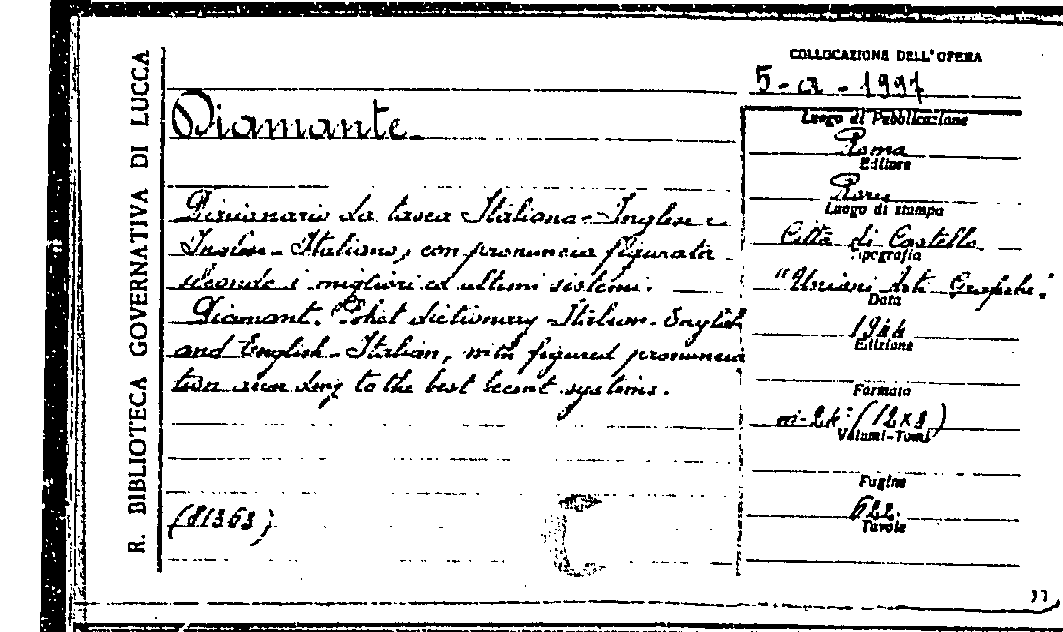 R. BIBLIOTECA GOVERNATIVA DI LUCCA
COLLOCAZIONE DELL'OPERA
5-a-1997
Diamante
Dizionario da tasca Italiano-Inglese e
Inglese-Italiano, con pronuncia figurata
secondo i migliori ed ultimi sistemi.
Diamant. Poket dictionary Italian-English
and English-Italian, with figured pronuncia
tion according to the best recent systems.
(81363)
Luogo di Pubblicazione
Roma
Editore
Luogo di stampa
Città di Castello
Tipografia
"Unione Arti Grafiche"
Data
1944
Edizione
Formato
in-24° (12x8)
Volumi-Tomi
Pagine
622.
Tavole
C